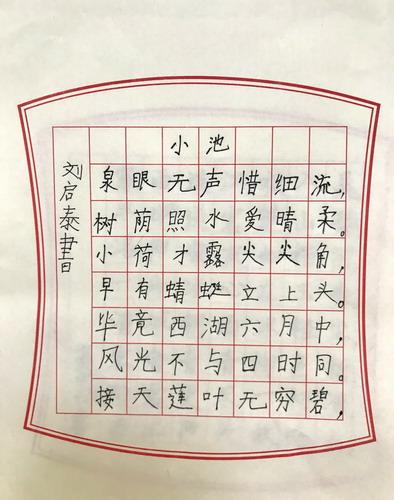 小池
泉眼无声惜细流，
树荫照水爱晴柔。
小荷才露尖尖角，
早有蜻蜓立上头。
毕竟西湖六月中，
风光不与四时同。
接天莲叶无穷碧，
刘启泰书